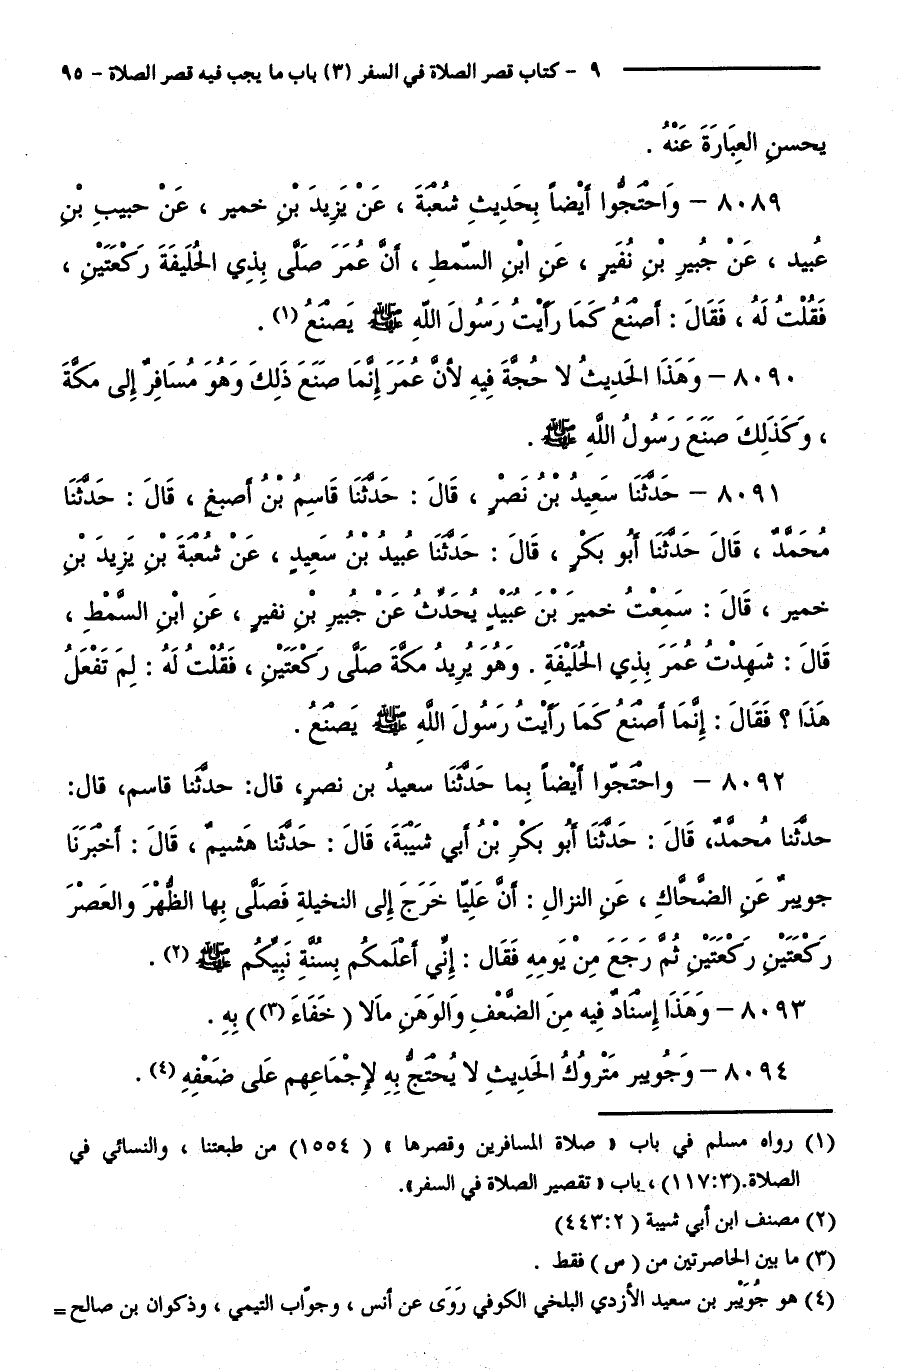 ٩ - كتاب قصر الصلاة في السفر (٣) باب ما يجب فيه قصر الصلاة - ٩٥
يحسنِ العِبَارَةَ عَنْهُ .
٨٠٨٩ - وَاحْتَجُّوا أيْضاً بِحَديثِ شُعْبَةَ ، عَنْ يَزِيدَ بْنِ خمير ، عَنْ حبيبِ بْنِ
عُبيد ، عَنْ جُبيرِ بْنِ نُفَيرٍ ، عَنِ ابْنِ السّمط ، أنَّ عُمَرَ صَلَّى بِذِي الحُلَيفَةَ رَكْعَتَيْنِ ،
فَقُلْتُ لَهُ ، فَقَالَ : أصْنَعُ كَمَا رأيْتُ رَسُولَ اللّهِ ﷺ يَصنَعُ (١) .
٨٠٩٠ - وَهَذَا الحَديثُ لا حُجَّةَ فِيهِ لأنَّ عُمَرَ إنَّمَا صَنَعَ ذَلِكَ وَهُوَ مُسَافِرٌ إلى مكَّةَ
، وَكَذَلِكَ صنَعَ رَسُولُ اللَّهِ ﷺ .
٨٠٩١ - حَدَّثَنَا سَعِيدُ بْنُ نَصْرٍ ، قَالَ : حَدَّثَنَا قَاسِمُ بْنُ أصبغ ، قَالَ : حَدَّثَنَا
مُحَمَّدٌ ، قَالَ حَدَّثَنَا أبُو بَكْرٍ ، قَالَ : حَدَّثَنَا عُبيدُ بْنُ سَعِيدٍ ، عَنْ شُعْبَةَ بْنِ يَزِيدَ بْنِ
خمير ، قَالَ : سَمِعْتُ خميرَ بْنَ عُبَيْدٍ يُحَدِّثُ عَنْ جُبيرِ بْنِ نفيرٍ ، عَنِ ابْنِ السَّمْطِ ،
قَالَ : شَهِدْتُ عُمَرَ بِذِي الحُلَيْفَةِ . وَهُوَ يُرِيدُ مَكَّةَ صَلَّى رَكْعَتَيْنِ ، فَقُلْتُ لَهُ : لِمَ تَفْعَلُ
هَذَا ؟ فَقَالَ : إِنَّمَا أصْنَعُ كَمَا رأيْتُ رَسُولَ اللَّهِ ﷺ يَصنَعُ .
٨٠٩٢ - واحْتَجّوا أيْضاً بِما حَدَّثَنَا سعيدُ بن نصرٍ، قال: حدثَّنا قاسم، قال:
حدثَّنا مُحمدٌ، قَالَ : حَدَّثَنَا أبُو بَكْرِ بْنُ أبي شَيْبَةَ، قَالَ : حَدَّثَنا هَشيمٌ ، قَالَ : أخْبَرَنَا
جويبرٌ عَنِ الضَّحَّاكِ ، عَنِ النزالِ : أنَّ عَلِيّا خَرَجَ إلى النخيلةِ فَصَلَّى بِها الظُّهْرَ والعَصْرَ
رَكْعَتَيْنِ رَكْعَتَيْنِ ثُمَّ رَجَعَ مِنْ يَومِهِ فَقَال : إِنِّي أعْلَمكُم بِسُنَّةِ نَبِيِّكُم ﷺ (٢) .
٨٠٩٣ - وَهَذَا إسْنَادٌ فِيه مِنَ الضَّعْفِ وَالوَهَنِ مَالا ( خَفَاءَ (٣)) بِهِ .
٨٠٩٤ - وَجُويبر مَتْروكُ الحَديثِ لا يُحْتَجُّ بِهِ لإِجْمَاعِهم عَلى ضَعْفِهِ (٤) .
(١) رواه مسلم في باب « صلاة المسافرين وقصرها » ( ١٥٥٤) من طبعتنا ، والنسائي في
الصلاة.(٣:١١٧) ، باب « تقصير الصلاة في السفر».
(٢) مصنف ابن أبي شيبة ( ٢:٤٤٣)
(٣) ما بين الحاصرتين من ( س ) فقط .
(٤) هو جُوَيْبر بن سعيد الأزدي البلخي الكوفي رَوَى عن أنس ، وجوّاب التيمي ، وذكوان بن صالح =